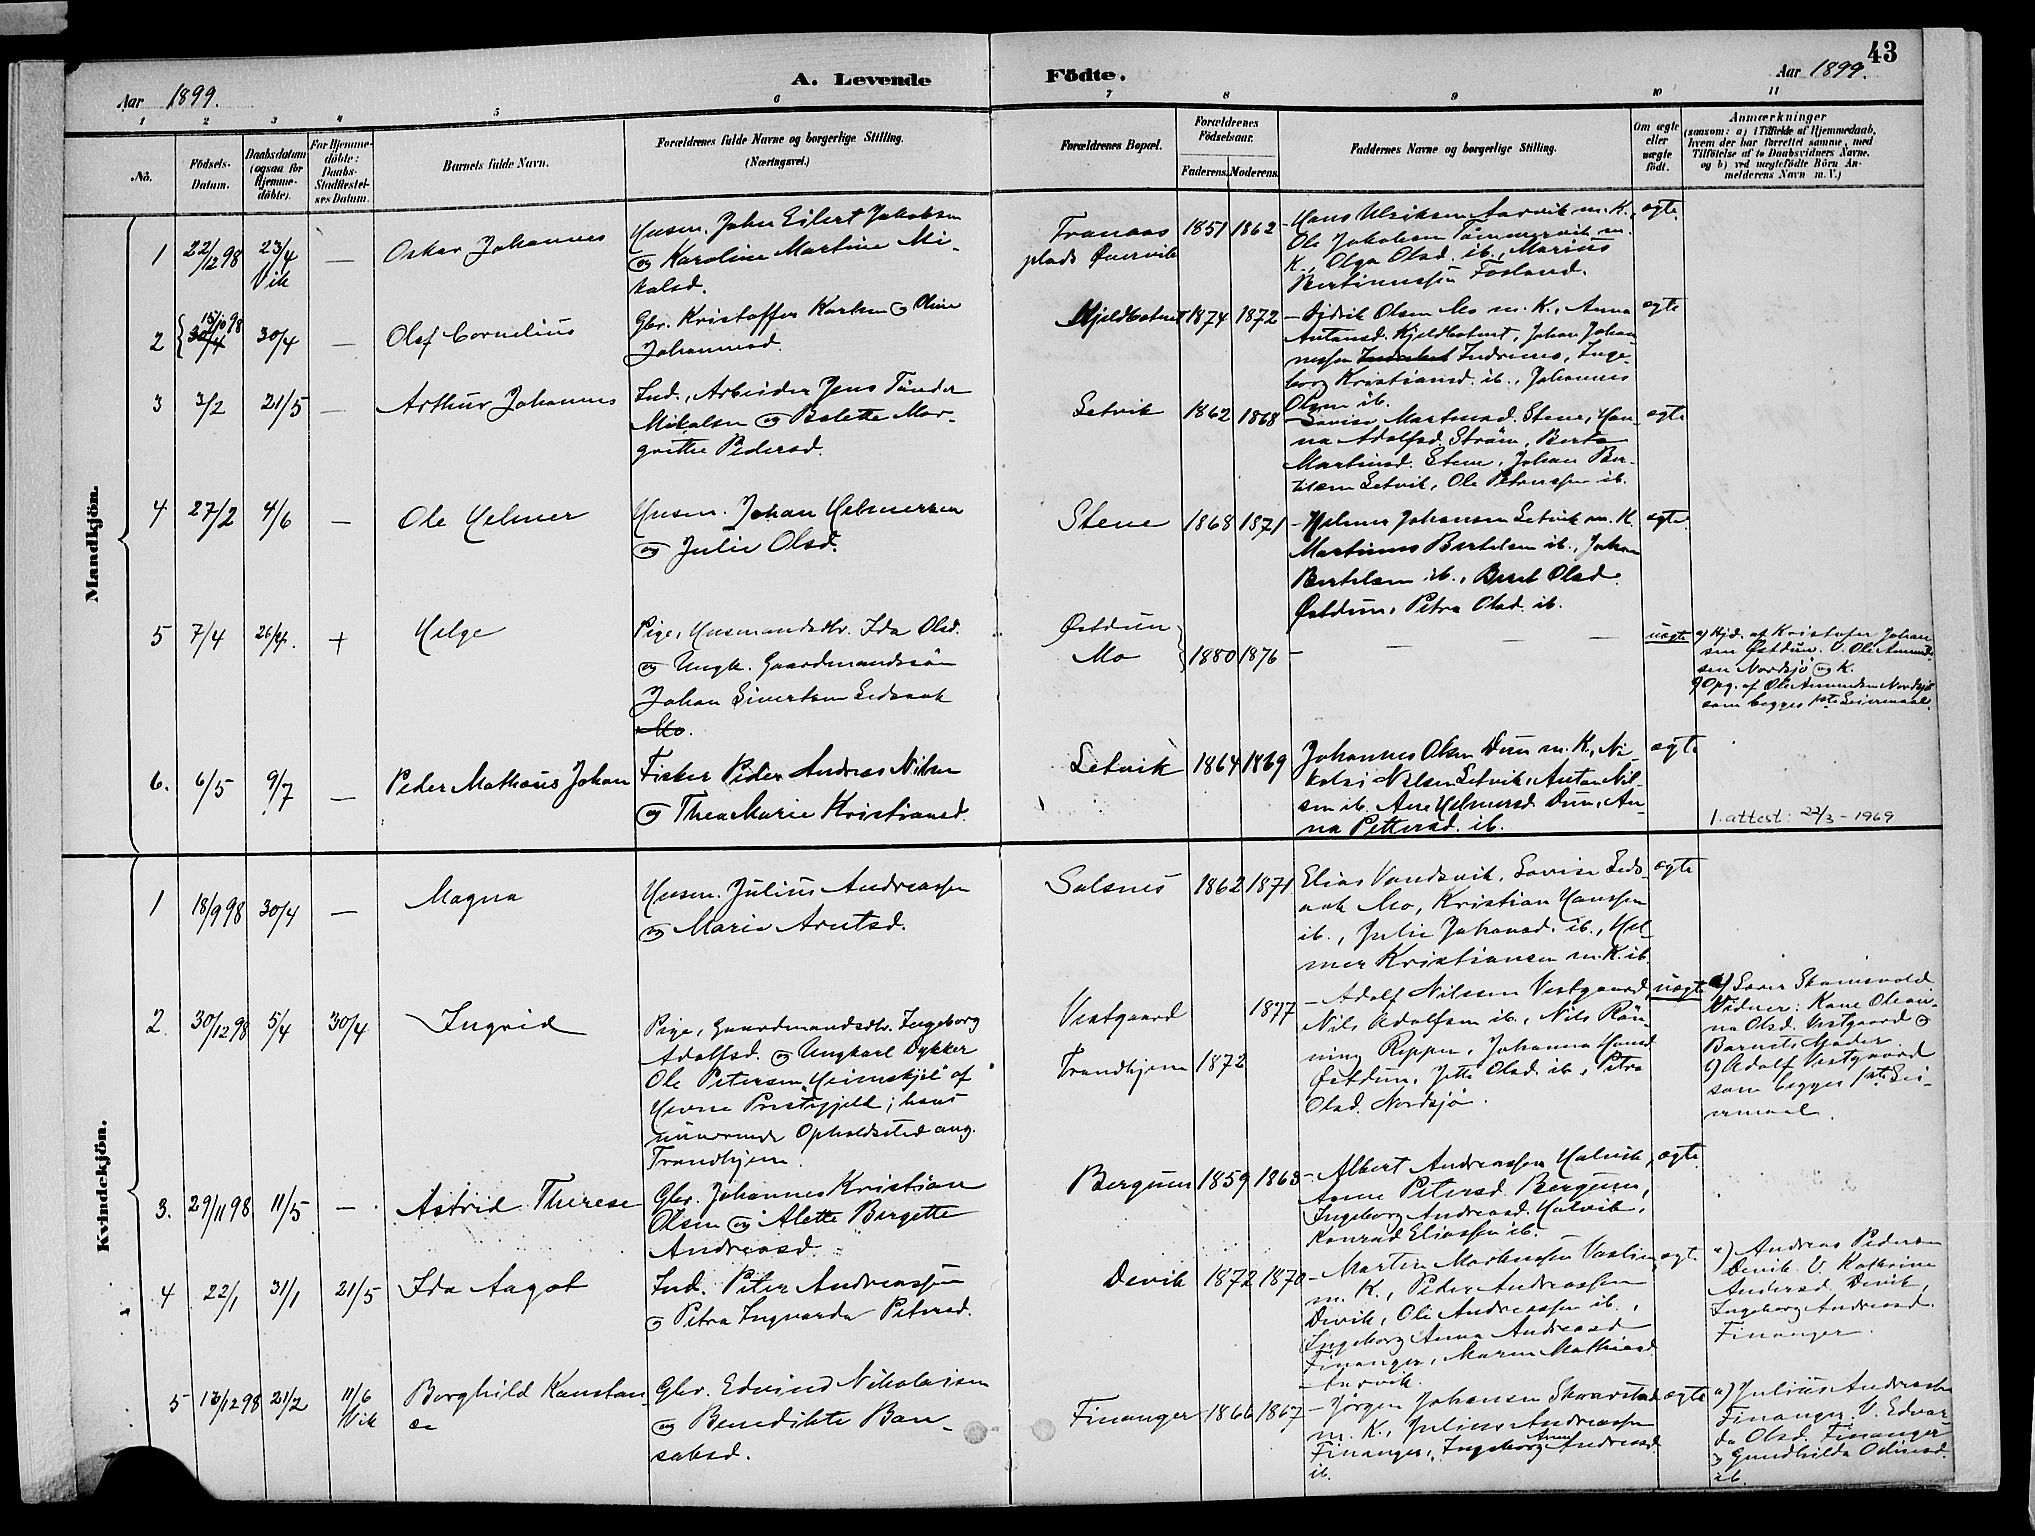 43
A. Levende Födte.
Aar 1899.
Aar 1899.
1 2 3 4 5 6 7 8 9 10 11
No.
Födsels-Datum.
Daabsdatum (ogsaa for Hjemme-döbte).
For Hjemme-döbte: Daabs-Stadfæstel-ses Datum.
Barnets fulde Navn.
Forældrenes fulde Navne og borgerlige Stilling.
(Næringsvei.)
Forældrenes Bopæl.
Forældrenes Födselsaar.
Faderens. Moderens.
Faddernes Navne og borgerlige Stilling.
Om ægte eller uægte födt.
Anmærkninger
(saasom: a) i Tilfælde af Hjemmedaab,
hvem der har forrettet samme, med
Tilföielse af to Daabsvidners Navne,
og b) ved uægtefödte Börn An-
melderens Navn m. V.)
Mandkjön.
1 22/12 98 23/4 Vik — Oskar Johannes
Husm. Johan Eilert Jakobsen
og Karoline Martine Mi-
kalsd.
Tranaas
plads Øvervik
1851 1862
Hans Ulriksen Aarvik m. K.,
Ole Jakobsen Tömmervik m.
K., Olga Olsd. ib., Marius
Bertinussen Fosland.
ægte
2 15/10 98 30/4 30/4 — Olaf Cornelius
Gbr. Kristoffer Karlsen og Oline
Johannesd.
Kjeldbotnet 1874 1872
Sidrik Olsen Mo m. K., Anna
Antonsd. Kjeldbotnet, Johan Johan
nessen Indrenes, Inge-
borg Kristiansd. ib., Johannes
Olsen ib.
ægte
3 3/2 21/5 — Arthur Johannes
Ind., Arbeider Jens Tönder
Mikalsen og Bolette Mar-
grethe Pedersd.
Setvik 1862 1868
Lovise Martinsd. Stene, Han-
na Adolfsd. Ström, Berta
Martinsd. Stene, Johan Ber-
telsen Setvik, Ole Peterssen ib.
ægte
4 27/2 4/6 — Ole Helmer
Husm. Johan Helmersen
og Julie Olsd.
Stene 1868 1871
Helmer Johansen Setvik m. K.
Martinus Bertelsen ib., Johan
Bertelsen ib., Beret Olsd.
Østdun, Petra Olsd. ib.
ægte.
5 7/4 26/4. + Helge
Pige, Husmandsdtr. Ida Olsd.
og Ungk. Gaardmandssön
Johan Sivertsen Sedsaak
Mo.
Østdun
Mo
1880 1876
— — —
uægte
a) Hjd. af Kristofer Johan
sen Østdun. V. Ole Amund-
sen Nordsjö og K.
b) Opg. af Ole Amundsen Nordsjö
som begges 1ste Leiermaal.
6. 6/5 9/7 — Peder Mathæus Johan
Fisker Peder Andreas Nilsen
og Thea Marie Kristiansd.
Setvik 1864 1869
Johannes Olsen Dun m. K., Ni-
kolai Nilsen Setvik, Anton Nil-
sen ib. Ane Helmersd. Dun, An-
na Pettersd. ib.
ægte
1. attest: 22/3 - 1969
Kvindekjön.
1 18/9 98 30/4 — Magna
Husm. Julius Andreassen
og Marie Arntsd.
Salsnes 1862 1871
Elias Vandsvik, Lovise Seds-
aak Mo, Kristian Hanssen
ib., Julie Johansd. ib., Hel-
mer Kristiansen m. K. ib.
ægte
2. 30/12 98 5/4 30/4 Ingrid
Pige, Gaardmandsdtr. Ingeborg
Adolfsd. og Ungkarl Dykker
Ole Petersen "Heimskjel" af
Hevne Prestegjeld; hans
nuværende Opholdssted ang.
Trondhjem.
Vestgaard 1877
Trondhjem 1872
Adolf Nilssen Vestgaard,
Nils Adolfsen ib., Nils Rön-
ning Roppen, Johanna Hansd
Østdun, Jette Olsd. ib., Petra
Olsd. Nordsjö.
uægte
a) Lærer Skomsvold
Vidner: Kone Olean-
na Olsd. Vestgaard og
Barnets Moder.
b) Adolf Vestgaard
som begges 1ste Lei-
ermaal.
3. 29/11 98 11/5 — Astrid Therese
Gbr. Johannes Kristian
Olsen og Alette Bergette
Andreasd.
Berguen 1859 1863
Albert Andreassen Halvik,
Anne Petersd. Berguen,
Ingeborg Andreasd. Halvik,
Konrad Eliassen ib.
ægte
4 22/1 31/1 21/5 Ida Aagot
Ind. Peter Andreassen
og Petra Ingvarda Petersd.
Devik 1872 1870
Martin Martinssen
m. K., Peder Andreassen
Devik, Ole Andreassen ib.,
Ingeborg Anna Andreasd
Finanger, Maren Mathiasd
ægte
a) Andreas Pedersen
Devik. V. Kathrine
Andersd. Devik,
Ingeborg Andreasd.
Finanger.
5 13/12 98 21/2 11/6 Vik Borghild Konstan
se
Gbr. Edvind Nikolaisen
og Benedikte Bar-
sabsd.
Finanger 1866 1867
Jörgen Johansen Skvarstad
m. K., Julius Andreassen
Finanger, Ingeborg Anna Andreasd
ib.
ægte
a) Julius Andreassen
Finanger. V. Edvar-
da Olsd. Finanger
og Gundhilda Odinsd.
ib.